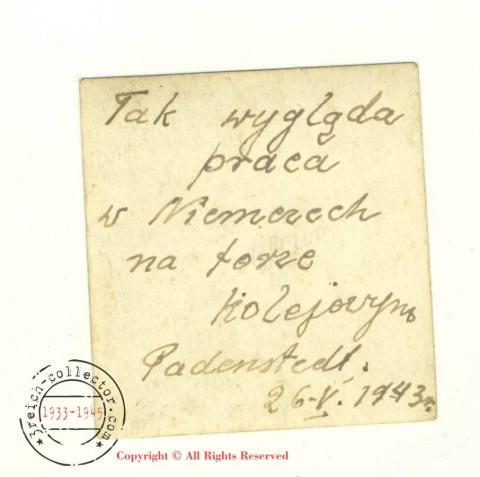 Tak wygląda
praca
w Niemczech
na torze
kolejowym
Padenstedt.
26-V. 1943r.
3reich-collector.com
1933-1945
Copyright © All Rights Reserved